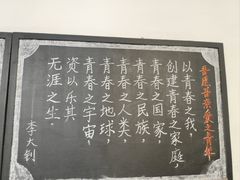 以青春之我，
创建青春之家庭，
青春之国家，
青春之民族，
青春之人类，
青春之地球，
青春之宇宙，
资以乐其
无涯之生．
李大钊